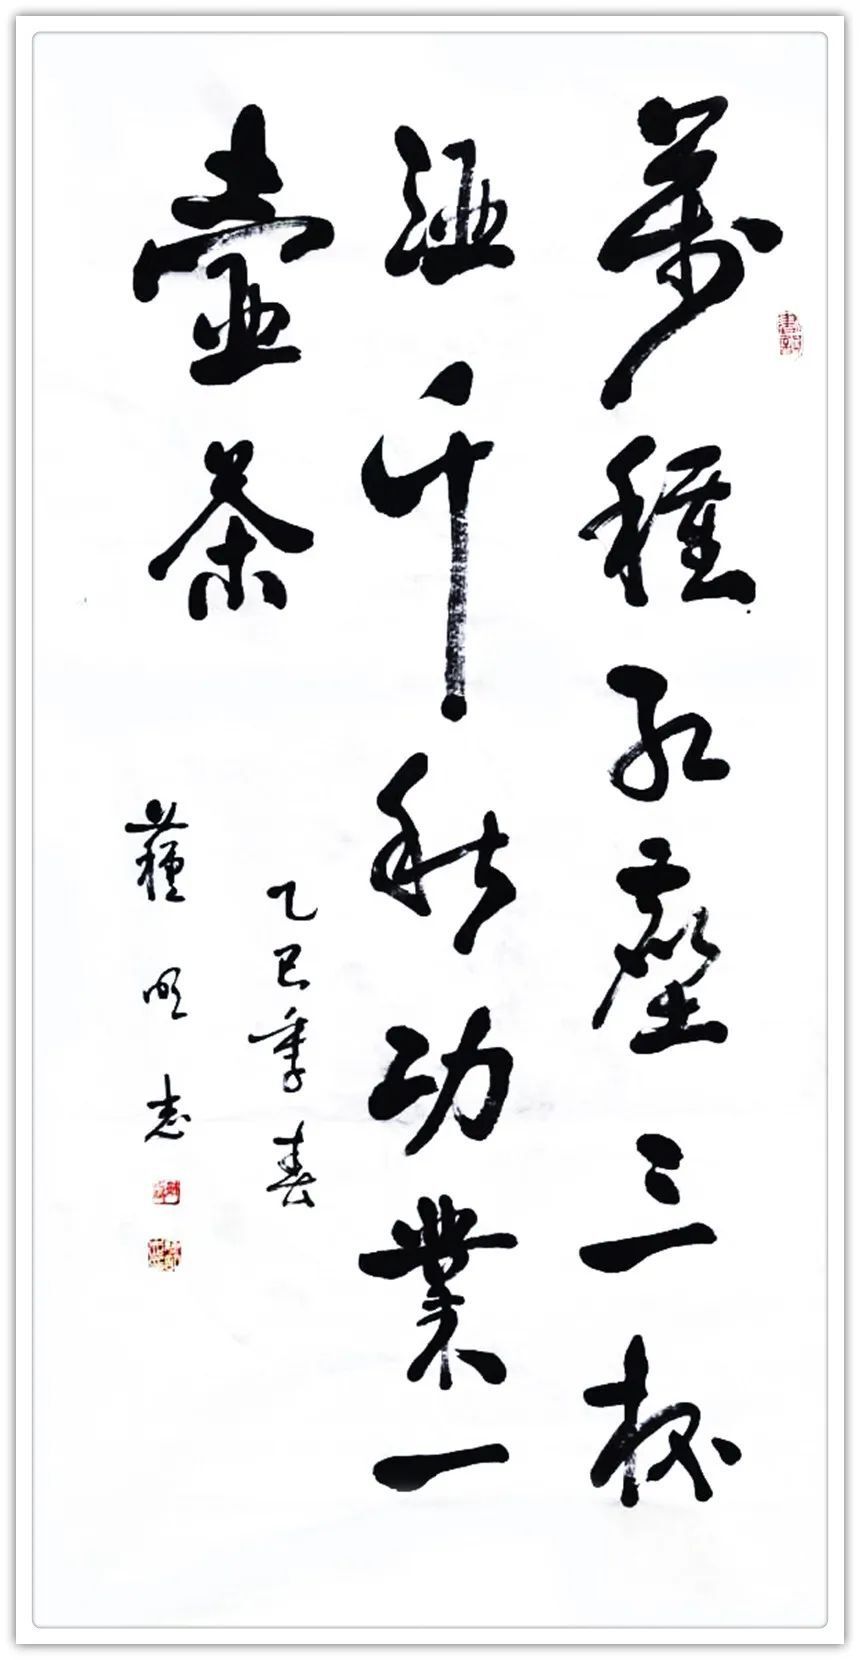 萬種紅塵三杯
酒千秋功業一
壺茶
乙巳季春
蘓明志